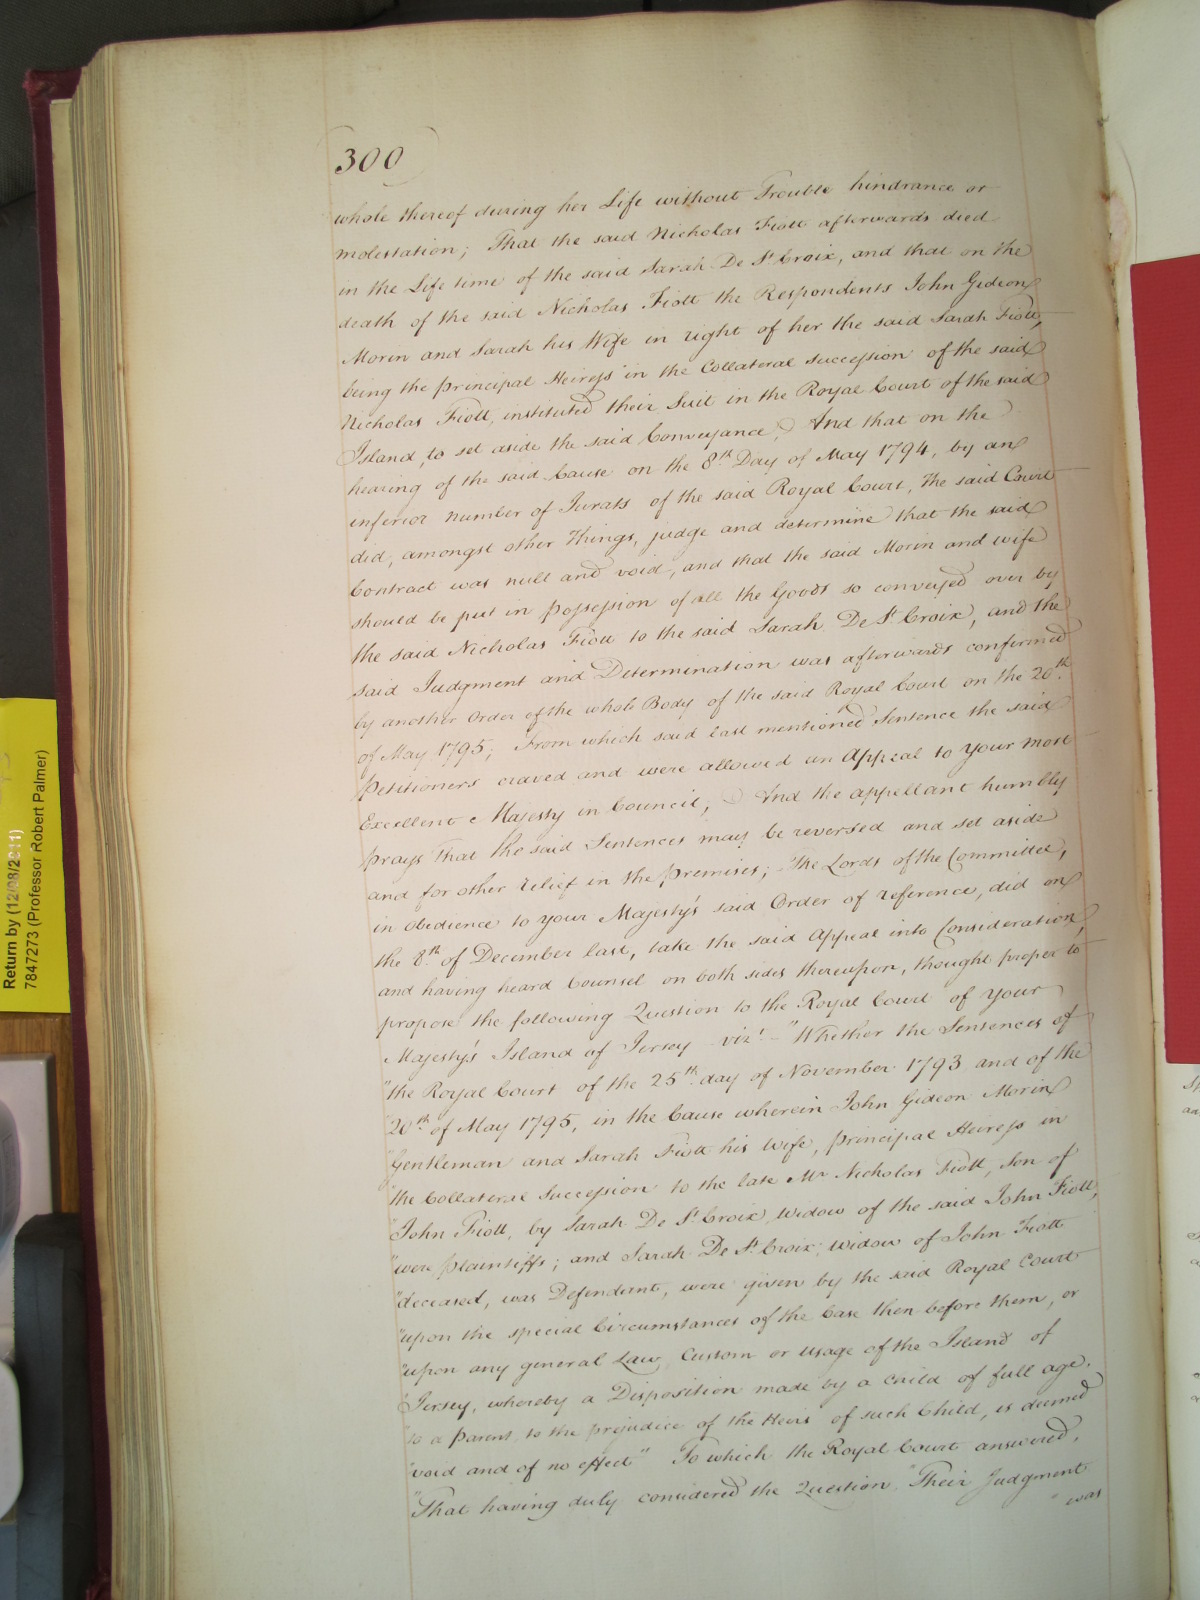 300
whole thereof during her Life without Trouble hindrance or
molestation; That the said Nicholas Fiott afterwards died
in the Life time of the said Sarah De St. Croix, and that on the
death of the said Nicholas Fiott the Respondents John Gideon
Morin and Sarah his Wife in right of her the said Sarah Fiott,
being the principal Heiress in the Collateral succession of the said
Nicholas Fiott, instituted their Suit in the Royal Court of the said
Island, to set aside the said Conveyance; And that on the
hearing of the said Cause on the 8th. Day of May 1794, by an
inferior number of Jurats of the said Royal Court, the said Court
did, amongst other Things, judge and determine that the said
Contract was null and void, and that the said Morin and wife
should be put in possession of all the Goods so conveyed over by
the said Nicholas Fiott to the said Sarah De St. Croix, and the
said Judgment and Determination was afterwards confirmed
by another Order of the whole Body of the said Royal Court on the 20th.
of May 1795; From which said last mentioned Sentence the said
Petitioners craved and were allowed an Appeal to Your most
Excellent Majesty in Council, And the appellant humbly
prays That the said Sentences may be reversed and set aside
and for other relief in the premises; The Lords of the Committee,
in obedience to your Majesty's said Order of reference, did on
the 8th. of December last, take the said Appeal into Consideration,
and having heard Counsel on both sides thereupon, thought proper to
propose the following Question to the Royal Court of Your
Majesty's Island of Jersey vizt. "Whether the Sentences of
"the Royal Court of the 25th. day of November 1793 and of the
"20th. of May 1795, in the Cause wherein John Gideon Morin
"Gentleman and Sarah Fiott his Wife, principal Heiress in
"the Collateral Succession to the late Mr. Nicholas Fiott, Son of
"John Fiott, by Sarah De St. Croix, Widow of the said John Fiott,
"were plaintiffs; and Sarah De St. Croix, widow of John Fiott
"deceased, was Defendant, were given by the said Royal Court
"upon the special Circumstances of the Case then before them, or
"upon any general Law, Custom or usage of the Island of
"Jersey, whereby a Disposition made by a Child of full age,
"to a parent, to the prejudice of the Heirs of such Child, is deemed
"void and of no effect" To which the Royal Court answered,
"That having duly considered the Question, "Their Judgment
" was
Return by (12/08/2011)
7847273 (Professor Robert Palmer)